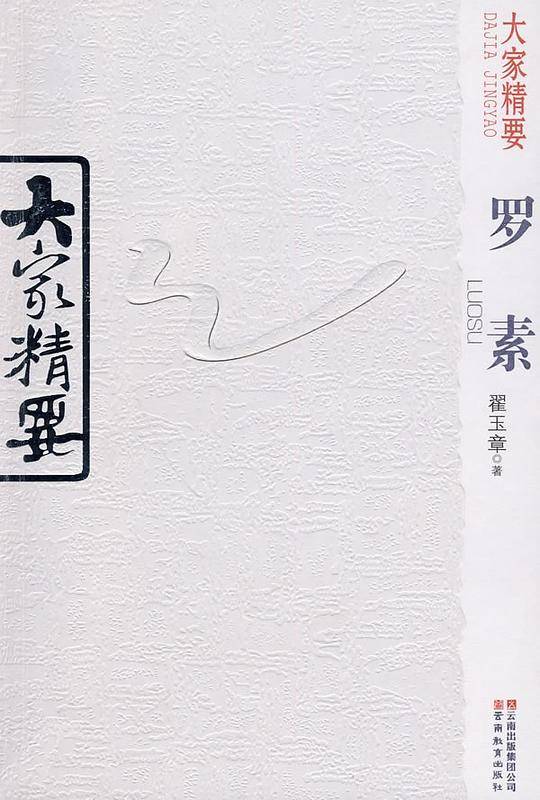 大家精要
DAJIA JINGYAO
罗素
LUOSU
翟玉章◎著
云南出版集团公司
云南教育出版社
大家精要